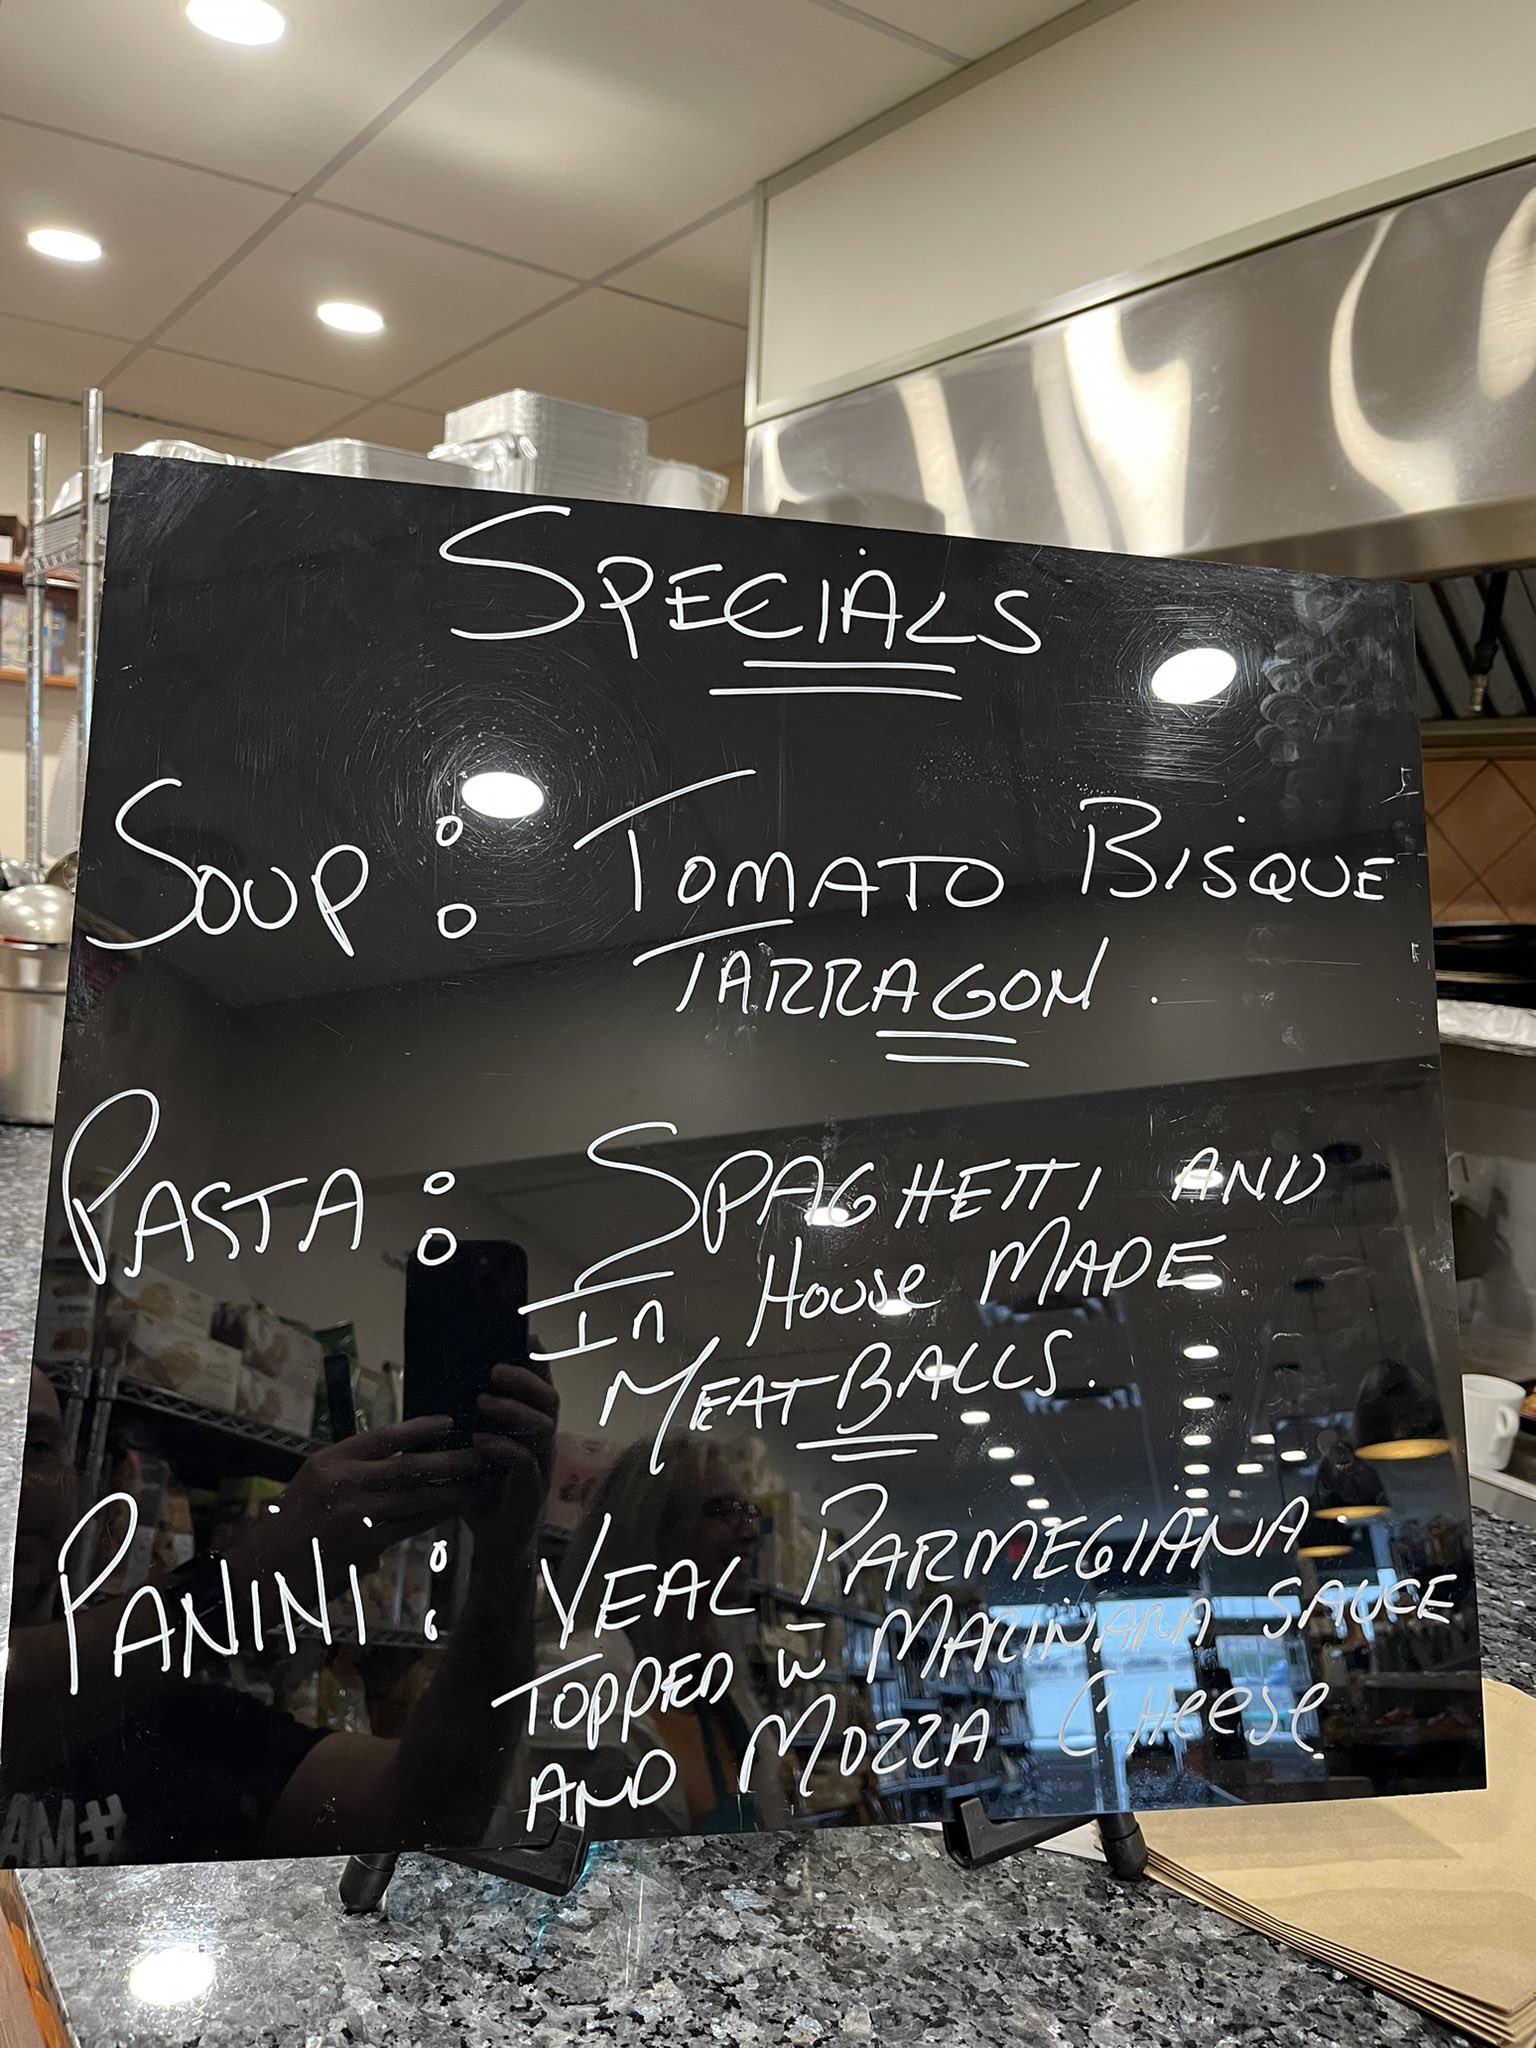 SPECIALS
SOUP: TOMATO BISQUE
TARRAGON.
PASTA: SPAGHETTI AND
In House MADE
MEATBALLS.
PANINI: VEAL PARMEGIANA
TOPPED w̄ MARINARA SAUCE
AND MOZZA CHeese
AM#